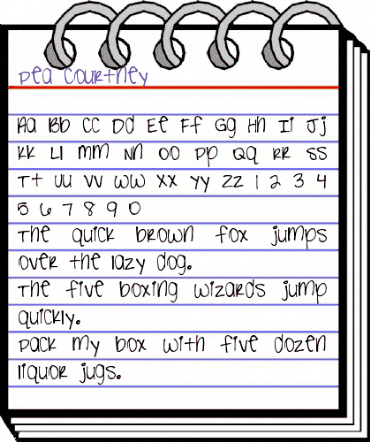 pea courtney
Aa Bb Cc Dd Ee Ff Gg Hh Ii Jj
Kk Ll Mm Nn Oo Pp Qq Rr Ss
Tt Uu Vv Ww Xx Yy Zz 1 2 3 4
5 6 7 8 9 0
The quick brown fox jumps
over the lazy dog.
The five boxing wizards jump
quickly.
Pack my box with five dozen
liquor jugs.